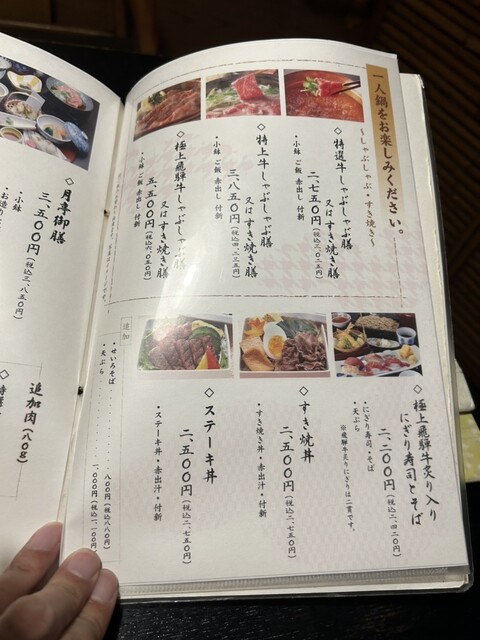 一人鍋をお楽しみください。
〜しゃぶしゃぶ・すき焼き〜
◇特選牛しゃぶしゃぶ膳
又はすき焼き膳
二、七五〇円(税込三、〇二五円)
・小鉢 ご飯 赤出し 付新
◇特上牛しゃぶしゃぶ膳
又はすき焼き膳
三、八五〇円(税込四、二三五円)
・小鉢 ご飯 赤出し 付新
◇極上飛騨牛しゃぶしゃぶ膳
又はすき焼き膳
五、五〇〇円(税込六、〇五〇円)
・小鉢 ご飯 赤出し 付新
◇極上飛騨牛炙り入り
にぎり寿司とそば
二、二〇〇円(税込二、四二〇円)
・にぎり寿司・そば
・天ぷら
※飛騨牛炙りにぎりは二貫です。
◇すき焼丼
二、五〇〇円(税込二、七五〇円)
・すき焼き丼・赤出汁・付新
◇ステーキ丼
二、五〇〇円(税込二、七五〇円)
・ステーキ丼・赤出汁・付新
追加
・せいろそば 八〇〇円(税込八八〇円)
・天ぷら 一、〇〇〇円(税込一、一〇〇円)
◇月亭御膳
三、五〇〇円(税込三、八五〇円)
・小鉢
・お造り
追加肉(八〇g)